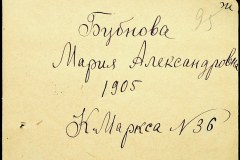 ж
95
Бубнова
Мария Александровна
1905
К.Маркса N 36